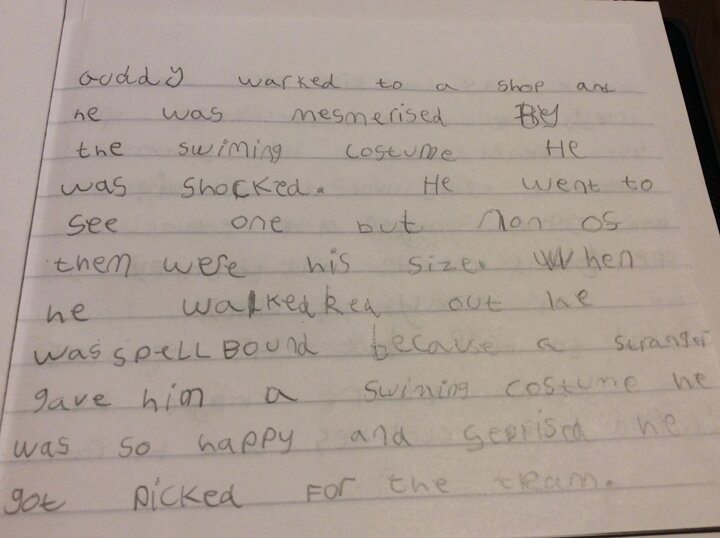 auddy warked to a shop and
he was mesmerised By
the swiming costume He
was shocked. He went to
see one but non os
them were his sizes When
he walkedked out he
was spellBound because a stranger
gave him a swiming costume he
was so happy and seprised he
got picked For the team.